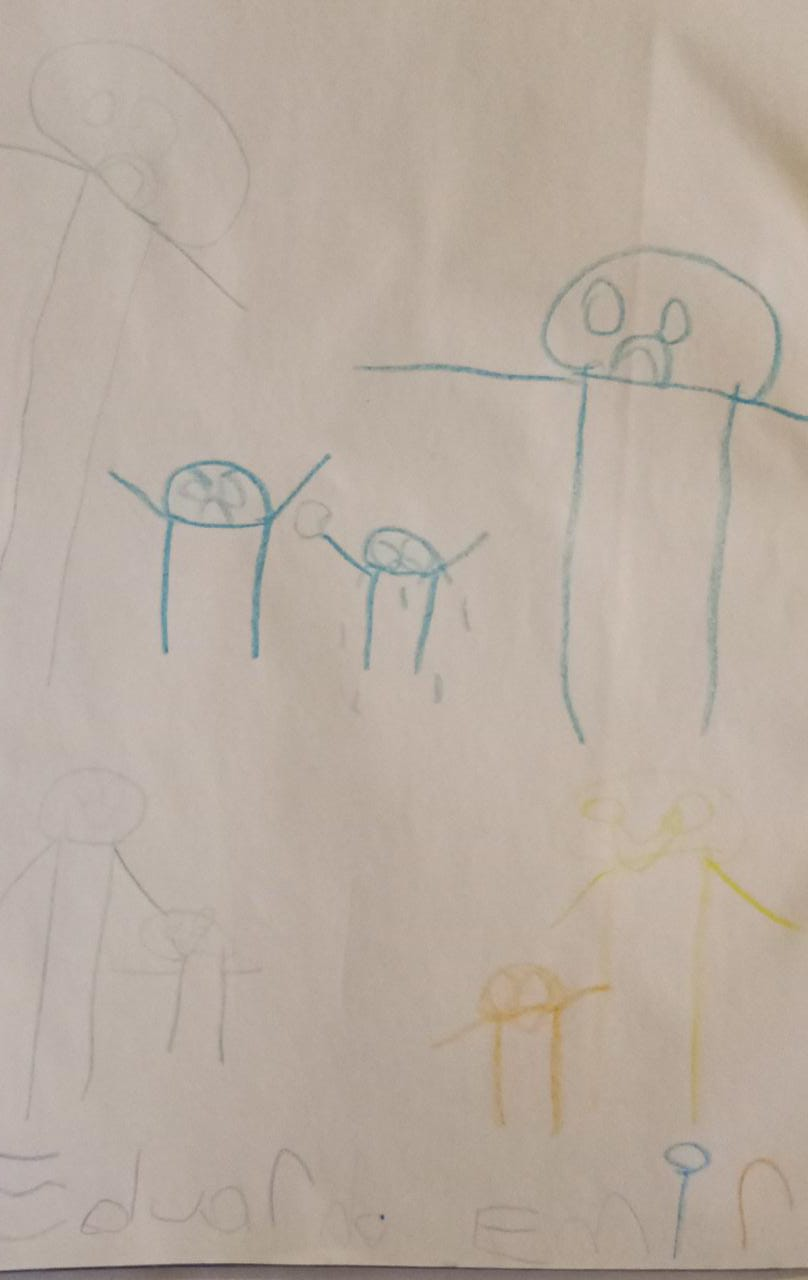 Eduardo Emir